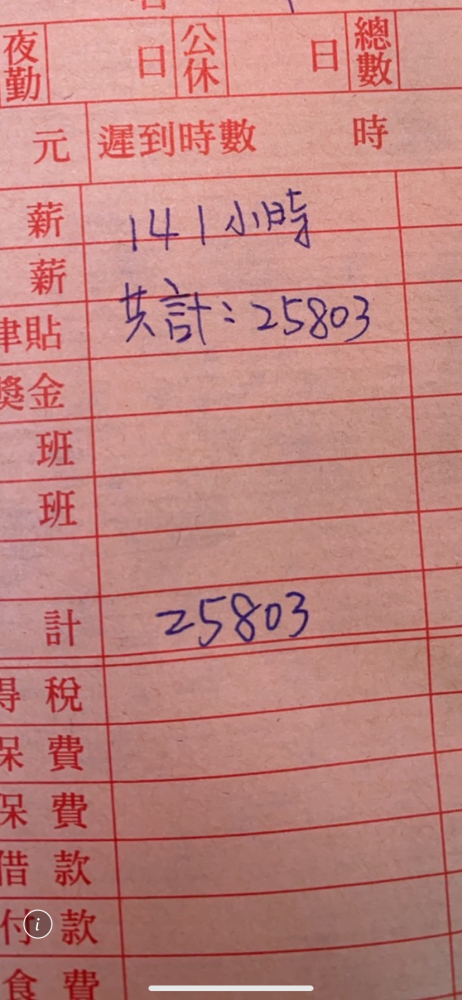 夜勤 日 公休 日 總數
元 遲到時數 時
薪 141小時
薪
津貼 共計:25803
獎金
班
班
計 25803
得稅
保費
保費
借款
付款
食費